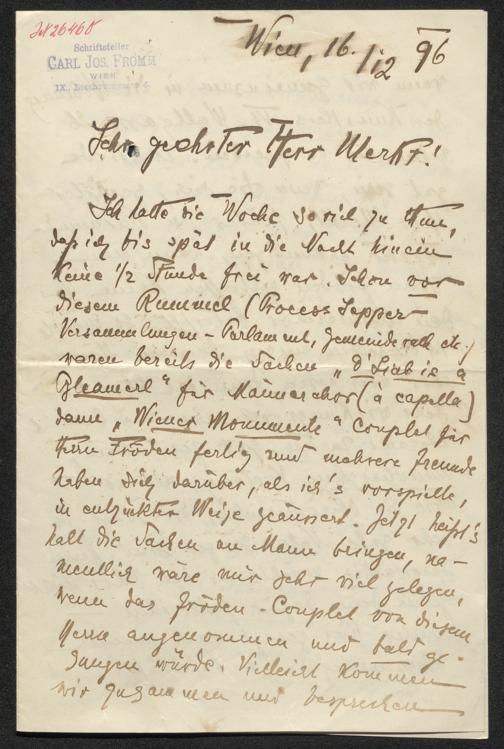 JN 26468
Schriftsteller
CARL JOS. FROMM
WIEN
IX.
Wien, 16./12 96
Sehr geehrter Herr Merkt!
Ich hatte die Woche soviel zu thun,
daß ich bis spät in die Nacht hinein
keine 1/2 Stunde frei war. Schon vor
diesem Rummel (Process Sepper
Versammlungen - Parlament, Gemeinderath etc.)
waren bereits die Sachen „D'Liab is a
Bleamerl" für Männerchor (à capella)
dann „Wiener Monumente" Couplet für
Herrn Fröden fertig und mehrere Freunde
haben sich darüber, als ich's vorspielte,
in entzückter Weise geäussert. Jetzt heißt's
halt die Sachen an Mann bringen, na-
mentlich wäre mir sehr viel gelegen,
wenn das Fröden-Couplet von diesem
Herrn angenommen und bald ge-
sungen würde. Vielleicht kommen
wir zusammen und besprechen